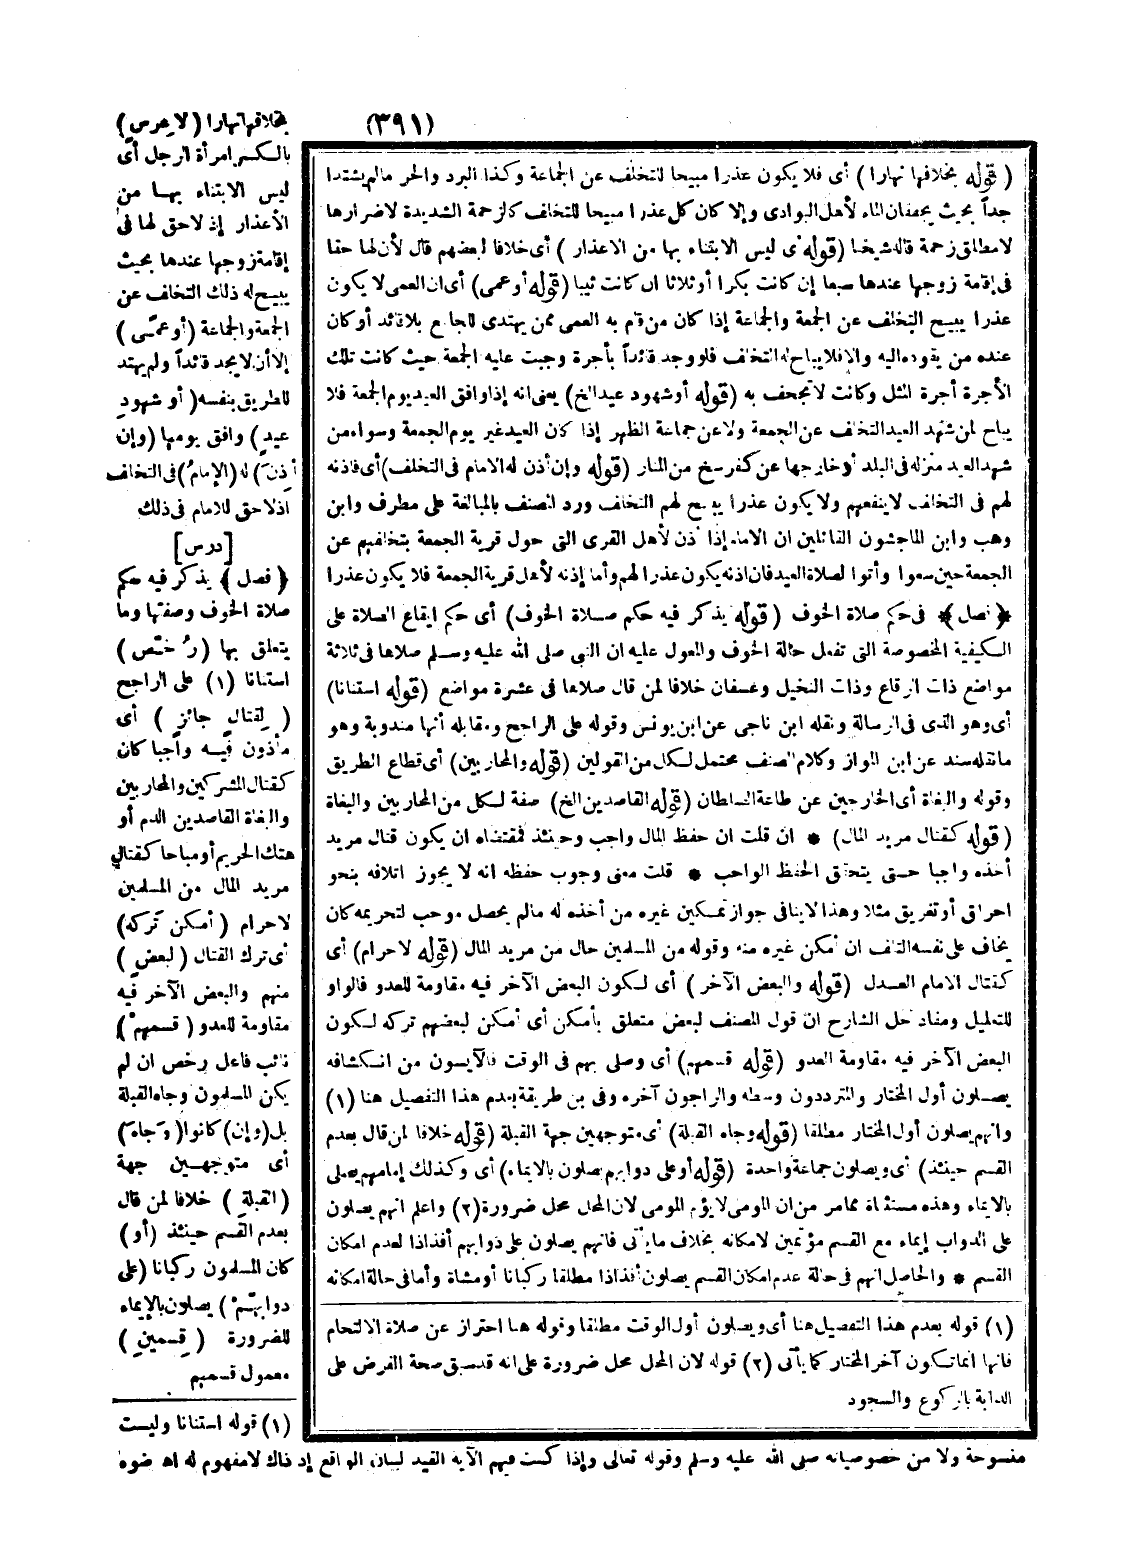 (٣٩١)
( قوله بخلافها نهارا ) أى فلا يكون عذرا مبيحا للتخلف عن الجماعة وكذا البرد والحر مالم يشتدا
جداً بحيث يجففان الماء لأهل البوادى وإلا كان كل عذرا مبيحا للتخلف كالزحمة الشديدة لاضرارها
لا مطلق زحمة قاله شيخنا (قوله أى ليس الابتناء بها من الاعذار ) أى خلافا لبعضهم قال لأن لها حقا
فى إقامة زوجها عندها سبعا إن كانت بكرا أو ثلاثا ان كانت ثيبا (قوله أو عمى) أى ان العمى لا يكون
عذرا يبيح التخلف عن الجمعة والجماعة إذا كان من قام به العمى ممن يهتدى للجامع بلا قائد أو كان
عنده من يقوده اليه والا فلا يباح له التخلف فلو وجد قائداً بأجرة وجبت عليه الجمعة حيث كانت تلك
الأجرة أجرة المثل وكانت لا تجحف به (قوله أو شهود عيد الخ) يعنى انه إذا وافق العيد يوم الجمعة فلا
يباح لمن شهد العيد التخلف عن الجمعة ولا عن جماعة الظهر إذا كان العيد غير يوم الجمعة وسواء من
شهد العيد منزله فى البلد أو خارجها عن كفرسخ من المنار (قوله وإن أذن له الامام فى التخلف) أى فاذنه
لهم فى التخلف لا ينفعهم ولا يكون عذرا يبيح لهم التخلف ورد المصنف بالمبالغة على مطرف وابن
وهب وابن الماجشون القائلين ان الامام إذا أذن لأهل القرى التى حول قرية الجمعة بتخلفهم عن
الجمعة حين سعوا وأتوا لصلاة العيد فان اذنه يكون عذرا لهم وأما إذنه لأهل قرية الجمعة فلا يكون عذرا
﴿ فصل ﴾ فى حكم صلاة الخوف ( قوله يذكر فيه حكم صلاة الخوف) أى حكم ايقاع الصلاة على
الكيفية المخصوصة التى تفعل حالة الخوف والمعول عليه ان النبى صلى الله عليه وسلم صلاها فى ثلاثة
مواضع ذات الرقاع وذات النخيل وعسفان خلافا لمن قال صلاها فى عشرة مواضع (قوله استنانا)
أى وهو الذى فى الرسالة ونقله ابن ناجى عن ابن يونس وقوله على الراجح ومقابله أنها مندوبة وهو
ما نقله سند عن ابن المواز وكلام المصنف محتمل لكل من القولين (قوله والمحاربين) أى قطاع الطريق
وقوله والبغاة أى الخارجين عن طاعة السلطان (قوله القاصدين الخ) صفة لكل من المحاربين والبغاة
(قوله كقتال مريد المال) * ان قلت ان حفظ المال واجب وحينئذ فمقتضاه ان يكون قتال مريد
أخذه واجبا حتى يتحقق الحفظ الواجب * قلت معنى وجوب حفظه انه لا يجوز اتلافه بنحو
احراق أو تفريق مثلا وهذا لا ينافى جواز تمكين غيره من أخذه له مالم يحصل موجب لتحريمه كان
يخاف على نفسه التلف ان أمكن غيره منه وقوله من المسلمين حال من مريد المال (قوله لا حرام) أى
كقتال الامام العدل (قوله والبعض الآخر ) أى لكون البعض الآخر فيه مقاومة للعدو فالواو
للتعليل ومفاد حل الشارح ان قول المصنف لبعض متعلق بأمكن أى أمكن لبعضهم تركه لكون
البعض الآخر فيه مقاومة العدو (قوله قسمهم) أى وصلى بهم فى الوقت فالآيسون من انكشافه
يصلون أول المختار والمترددون وسطه والراجون آخره وفى بن طريقة بعدم هذا التفصيل هنا (١)
وانهم يصلون أول المختار مطلقا (قوله وجاه القبلة) أى متوجهين جهة القبلة (قوله خلافا لمن قال بعدم
القسم حينئذ) أى ويصلون جماعة واحدة (قوله أو على دوابهم يصلون بالايماء) أى وكذلك إمامهم يصلى
بالايماء وهذه مستثناة مما مر من ان المومى لا يؤم المومى لان المحل محل ضرورة (٢) واعلم انهم يصلون
على الدواب إيماء مع القسم مؤتمين لامكانه بخلاف ما يأتى فانهم يصلون على دوابهم أفذاذا لعدم امكان
القسم * والحاصل انهم فى حالة عدم امكان القسم يصلون أفذاذا مطلقا ركبانا أو مشاة وأما فى حالة امكانه
(١) قوله بعدم هذا التفصيل هنا أى ويصلون أول الوقت مطلقا وقوله هنا احتراز عن صلاة الالتحام
فانها انما تكون آخر المختار كما يأتى (٢) قوله لان المحل محل ضرورة على انه قد سبق صحة الفرض على
الدابة بالركوع والسجود
بخلافها نهارا (لا عِرسٍ)
بالكسر امرأة الرجل أى
ليس الابتناء بها من
الأعذار إذ لا حق لها فى
إقامة زوجها عندها بحيث
يبيح له ذلك التخلف عن
الجمعة والجماعة (أو عمًى)
إلا أن لا يجد قائداً ولم يهتد
للطريق بنفسه (أو شهودِ
عيدٍ) وافق يومها (وإن
أذِنَ) له (الإمامُ) فى التخلف
اذ لا حق للامام فى ذلك
[درس]
﴿ فصل ﴾ يذكر فيه حكم
صلاة الخوف وصفتها وما
يتعلق بها (رُخِّصَ)
استنانا (١) على الراجح
( لقتالٍ جائزٍ ) أى
مأذون فيه واجبا كان
كقتال المشركين والمحاربين
والبغاة القاصدين الدم أو
هتك الحريم أو مباحا كقتال
مريد المال من المسلمين
لا حرام (أمكن تركه)
أى ترك القتال (لبعضٍ)
منهم والبعض الآخر فيه
مقاومة للعدو (قسمهمْ)
نائب فاعل رخص ان لم
يكن المسلمون وجاه القبلة
بل (وإن) كانوا (وِجاهَ)
أى متوجهين جهة
(القبلةِ) خلافا لمن قال
بعدم القسم حينئذ (أو)
كان المسلمون ركبانا (على
دوابهمْ) يصلون بالإيماء
للضرورة (قِسمينِ)
معمول قسمهم
(١) قوله استنانا وليست
منسوخة ولا من خصوصياته صلى الله عليه وسلم وقوله تعالى وإذا كنت فيهم الآية القيد لبيان الواقع إذ ذاك لا مفهوم له اه ضوء